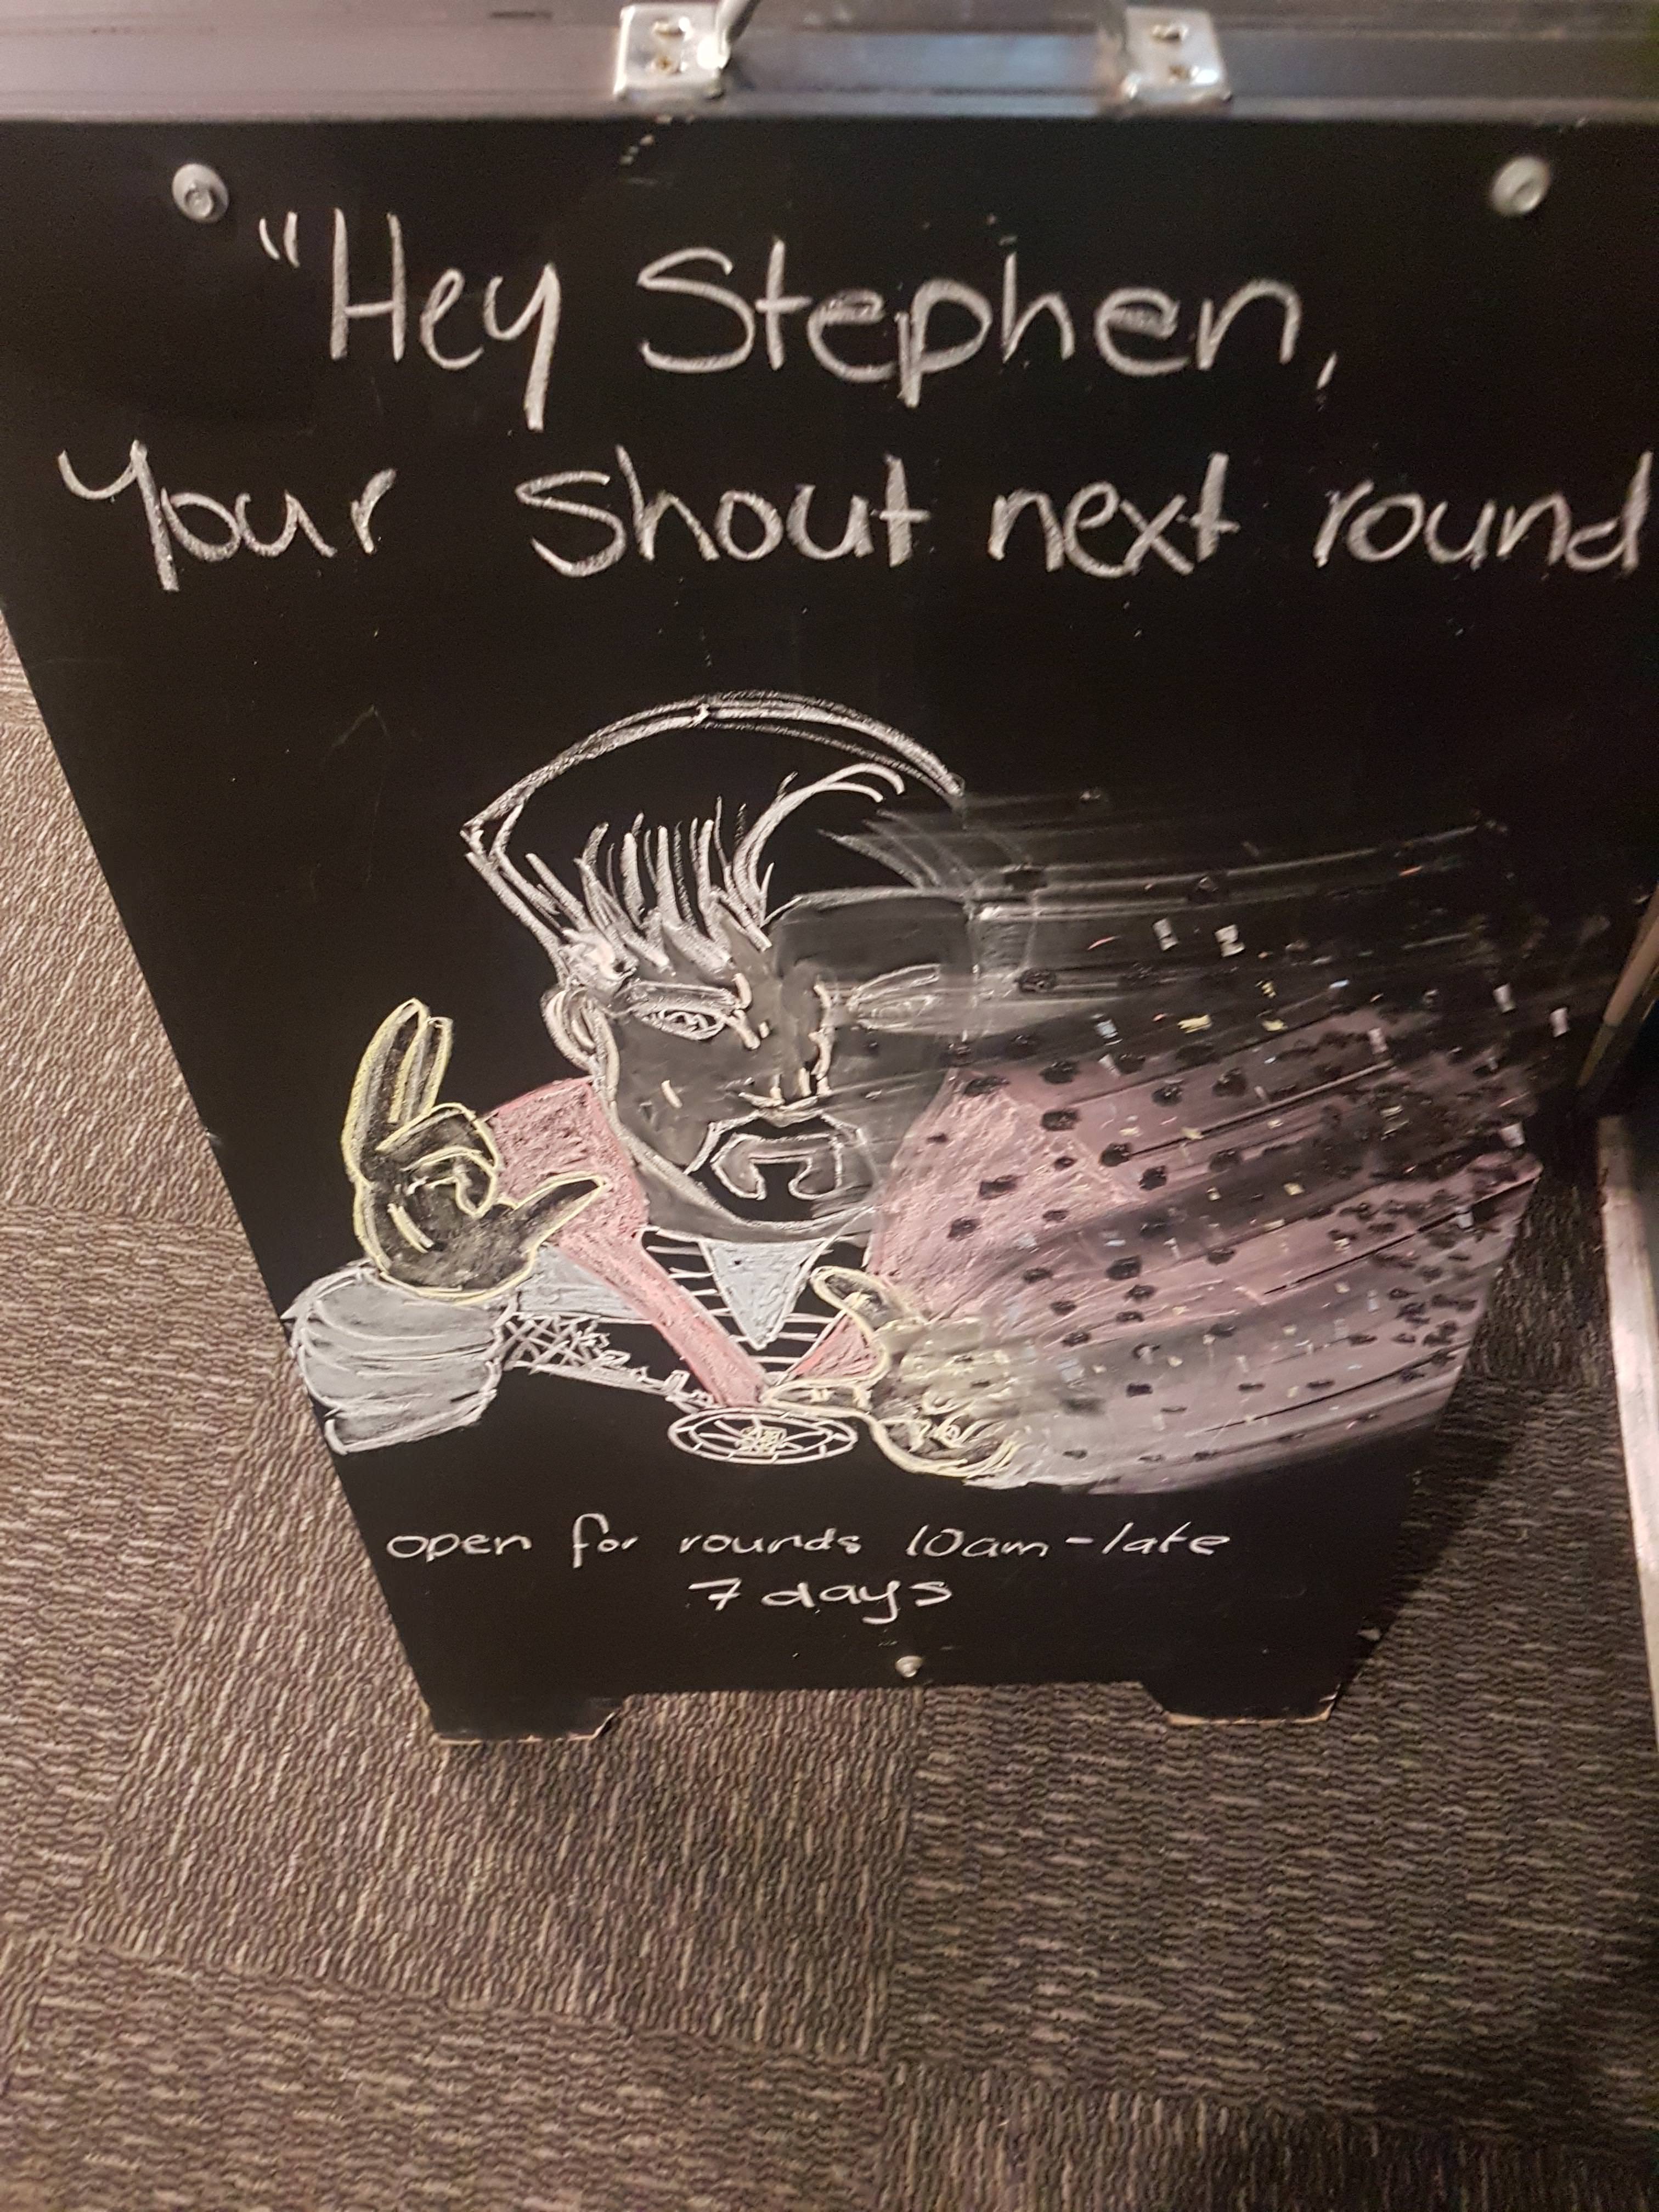 "Hey Stephen,
Your Shout next round
open for rounds 10am-late
7 days